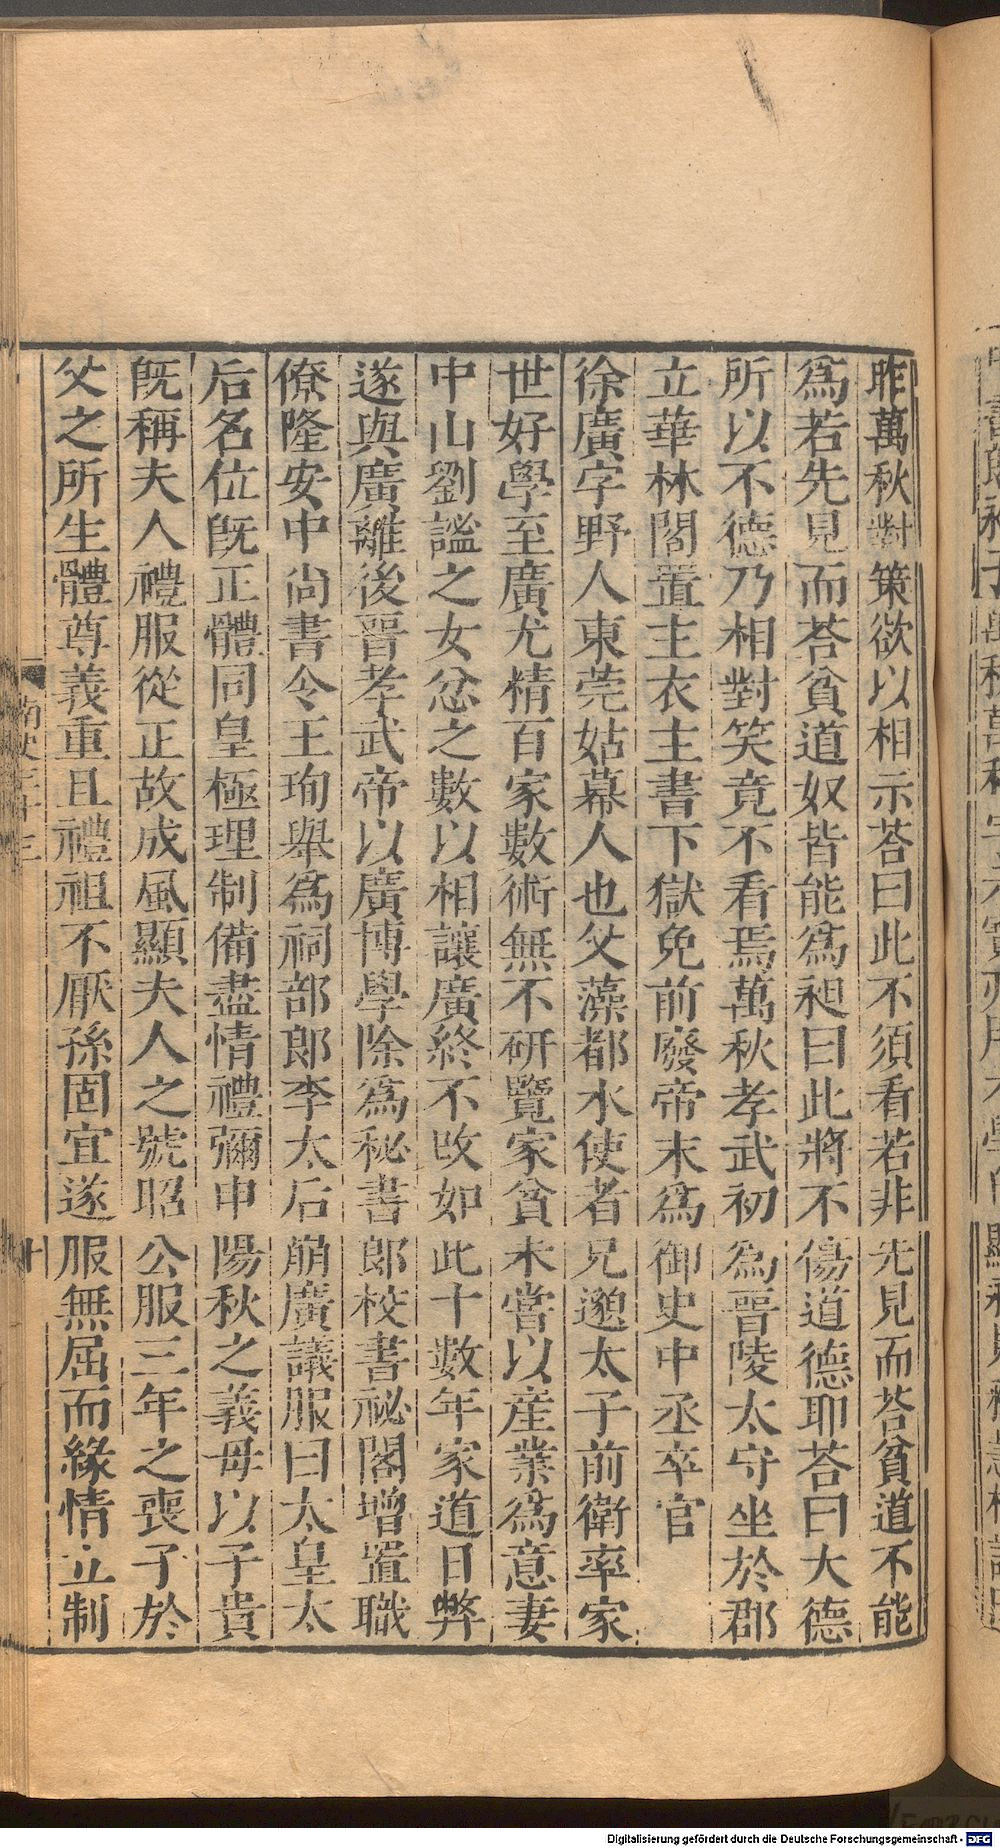 昨萬秋對策欲以相示荅曰此不須看若非先見而荅貧道不能
爲若先見而荅貧道奴皆能爲昶曰此將不傷道德耶荅曰大德
所以不德乃相對笑竟不看焉萬秋孝武初爲晉陵太守坐於郡
立華林閣置主衣主書下獄免前廢帝末爲御史中丞卒官
徐廣字野人東莞姑幕人也父藻都水使者兄邈太子前衛率家
世好學至廣尤精百家數術無不研覽家貧未嘗以産業爲意妻
中山劉謐之女忿之數以相讓廣終不改如此十數年家道日弊
遂與廣離後晉孝武帝以廣博學除爲秘書郎校書祕閣增置職
僚隆安中尚書令王珣舉爲祠部郎李太后崩廣議服曰太皇太
后名位旣正體同皇極理制備盡情禮彌申陽秋之義母以子貴
旣稱夫人禮服從正故成風顯夫人之號昭公服三年之喪子於
父之所生體尊義重且禮祖不厭孫固宜遂服無屈而緣情立制
南史三十三
十
Digitalisierung gefördert durch die Deutsche Forschungsgemeinschaft - DFG